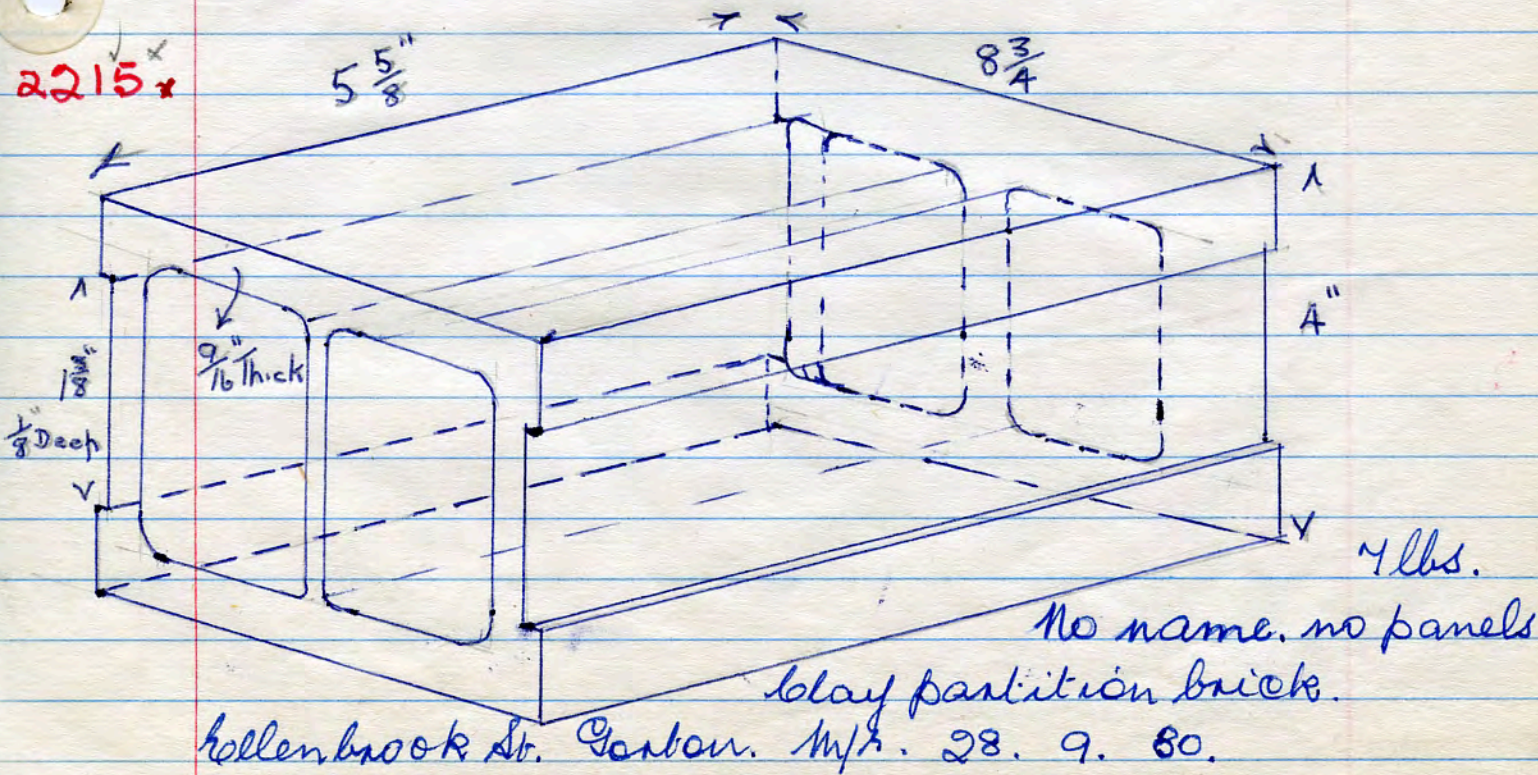 2215
5 5/8"
8 3/4
9/16" Thick
1 3/8"
1/8" Deep
4"
7 lbs.
No name. no panels
Clay partition brick.
Ellenbrook St. Gorton. M/R. 28. 9. 80.